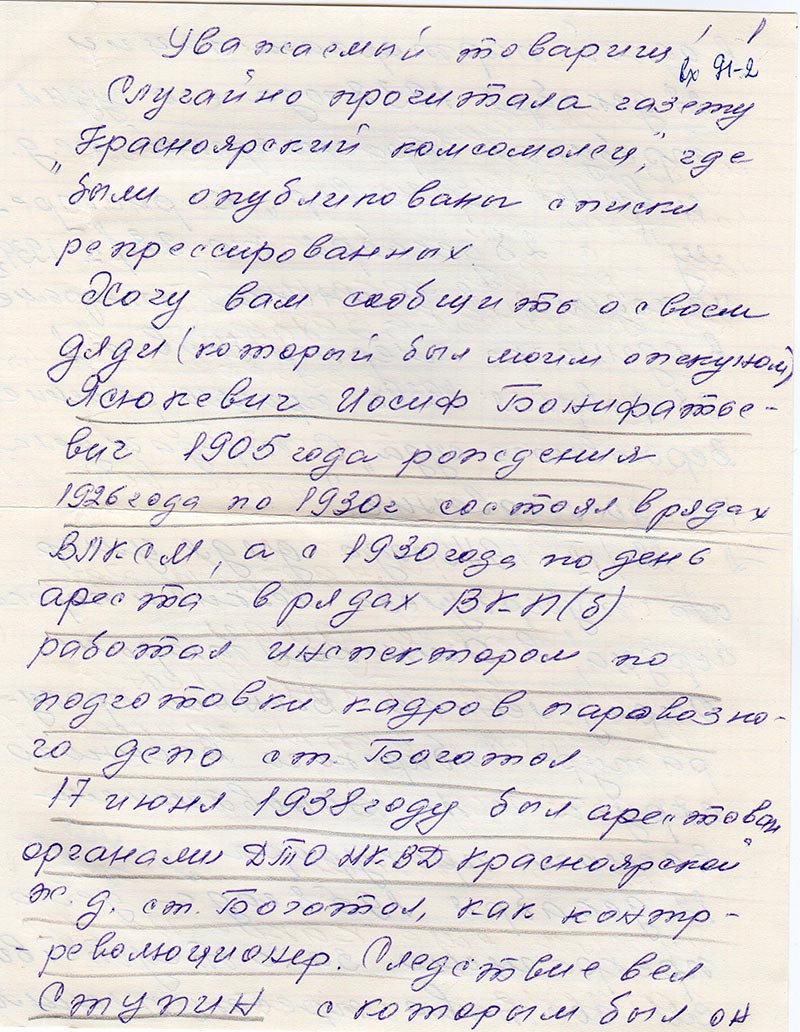 1
Уважаемый товарищ!
вх 91-2
Случайно прочитала газету
"Красноярский комсомолец", где
были опубликованы списки
репрессированных.
Хочу вам сообщить о своем
дяди (который был моим опекуном)
Ясюкевич Иосиф Бонифатье-
вич 1905 года рождения
1926 года по 1930 г состоял в рядах
ВЛКСМ, а с 1930 года по день
ареста в рядах ВК-П(б)
работал инспектором по
подготовки кадров паровозно-
го депо ст. Боготол
17 июня 1938 году был арестован
органами ДТО НКВД Красноярской
ж. д. ст. Боготол, как контр-
-революционер. Следствие вел
Ступин с которым был он